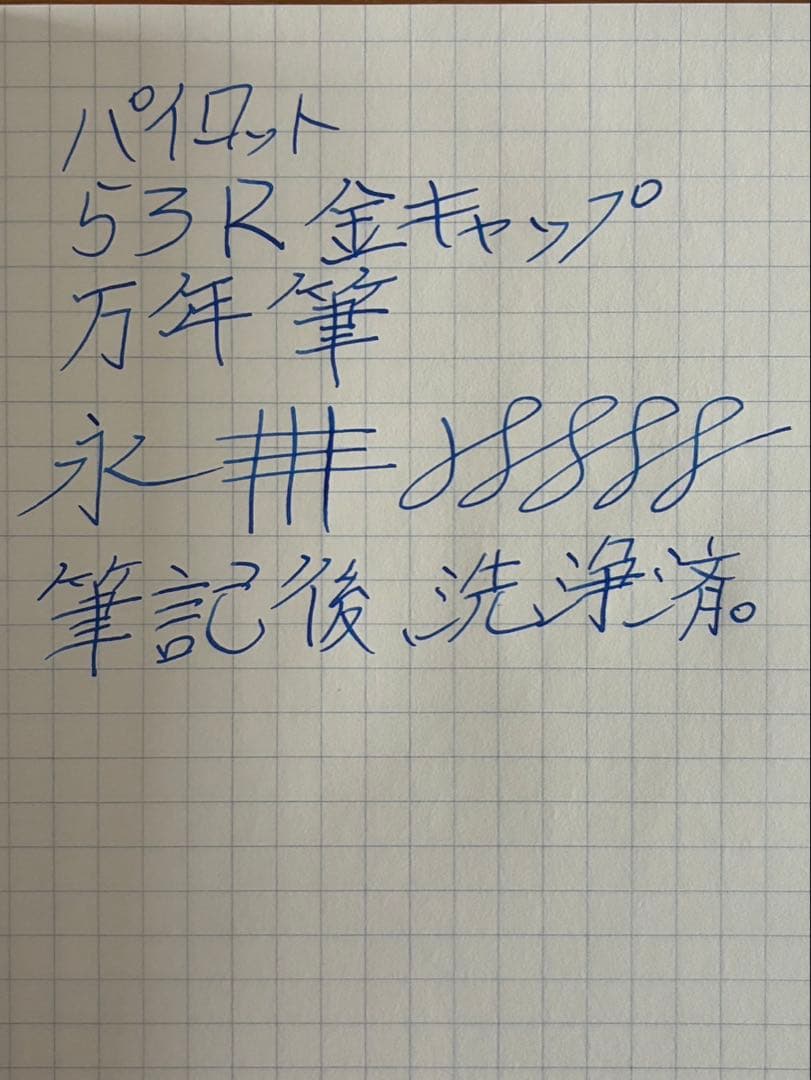 パイロット
53R金キャップ
万年筆
永
筆記後、洗浄済。